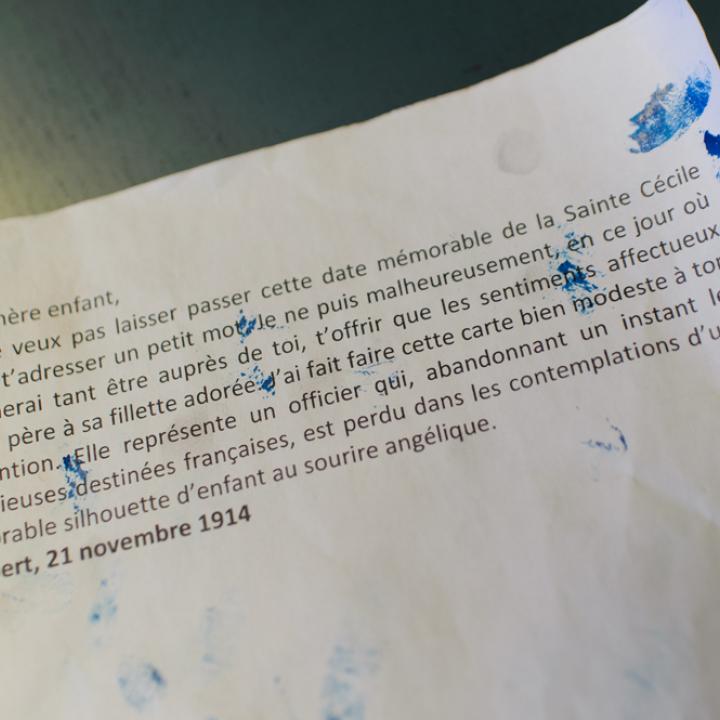 hère enfant,
veux pas laisser passer cette date mémorable de la Sainte Cécile
t’adresser un petit mot. Je ne puis malheureusement, en ce jour où
erai tant être auprès de toi, t’offrir que les sentiments affectueux
père à sa fillette adorée. J’ai fait faire cette carte bien modeste à ton
ntion. Elle représente un officier qui, abandonnant un instant l
ieuses destinées françaises, est perdu dans les contemplations d’u
rable silhouette d’enfant au sourire angélique.
ert, 21 novembre 1914